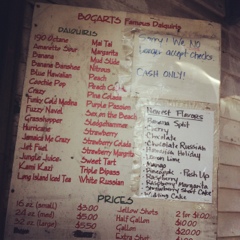 BOGARTS Famous Daiquiris
DAIQUIRIS
190 Octane
Amaretto Sour
Banana
Banana Banshee
Blue Hawaiian
Coochie Pop
Crazy
Funky Cold Medina
Fuzzy Navel
Grasshopper
Hurricane
Jamaica Me Crazy
Jet Fuel
Jungle Juice
Kami Kazi
Long Island Iced Tea
Mai Tai
Margarita
Mud Slide
Nitrous
Peach
Peach Colada
Pina Colada
Purple Passion
Sex on the Beach
Strawberry
Strawberry Colada
Strawberry Margarita
Sweet Tart
Triple Bipass
White Russian
Sorry! We No
Longer accept checks
CASH ONLY!
Newest Flavors
Banana Split
Cherry
Chocolate
Chocolate Russian
Hawaiian Holiday
Lemon Lime
Mango
Pineapple
Push Up
Raspberry
Raspberry Margarita
Strawberry Short Cake
Wedding Cake
PRICES
16 oz. (small) $5.00
24 oz.
32 oz. $5.50
Gallon
Jello Shots 2 for $1.00
Half Gallon
Gallon
Extra Shot